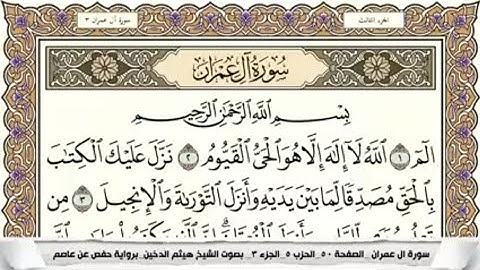 الجزء الثالث
سورة آل عمران ٣
سُورَةُ آلِ عِمْرَانَ
بِسْمِ اللَّهِ الرَّحْمَٰنِ الرَّحِيمِ
الٓمٓ ١ اللَّهُ لَا إِلَٰهَ إِلَّا هُوَ الْحَيُّ الْقَيُّومُ ٢ نَزَّلَ عَلَيْكَ الْكِتَابَ
بِالْحَقِّ مُصَدِّقًا لِّمَا بَيْنَ يَدَيْهِ وَأَنزَلَ التَّوْرَىٰةَ وَالْإِنجِيلَ ٣ مِن
سورة ال عمران _الصفحة ٥٠_ الحزب ٥_ الجزء ٣_ بصوت الشيخ هيثم الدخين_ برواية حفص عن عاصم